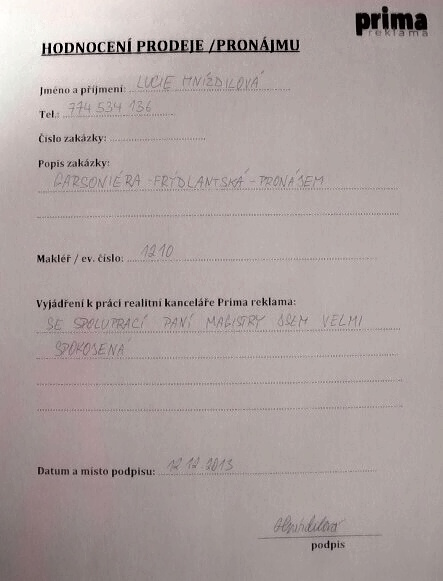 prima
reklama
HODNOCENÍ PRODEJE /PRONÁJMU
Jméno a příjmení: LUCIE HNÍZDILOVÁ
Tel.: 774 534 136
Číslo zakázky:
Popis zakázky:
GARSONIÉRA - FRÝDLANTSKÁ - PRONÁJEM
Makléř / ev. číslo: 1210
Vyjádření k práci realitní kanceláře Prima reklama:
SE SPOLUPRACÍ PANÍ MAGISTRY JSEM VELMI
SPOKOJENÁ
Datum a místo podpisu: 12.12.2013
Hnízdilová
podpis